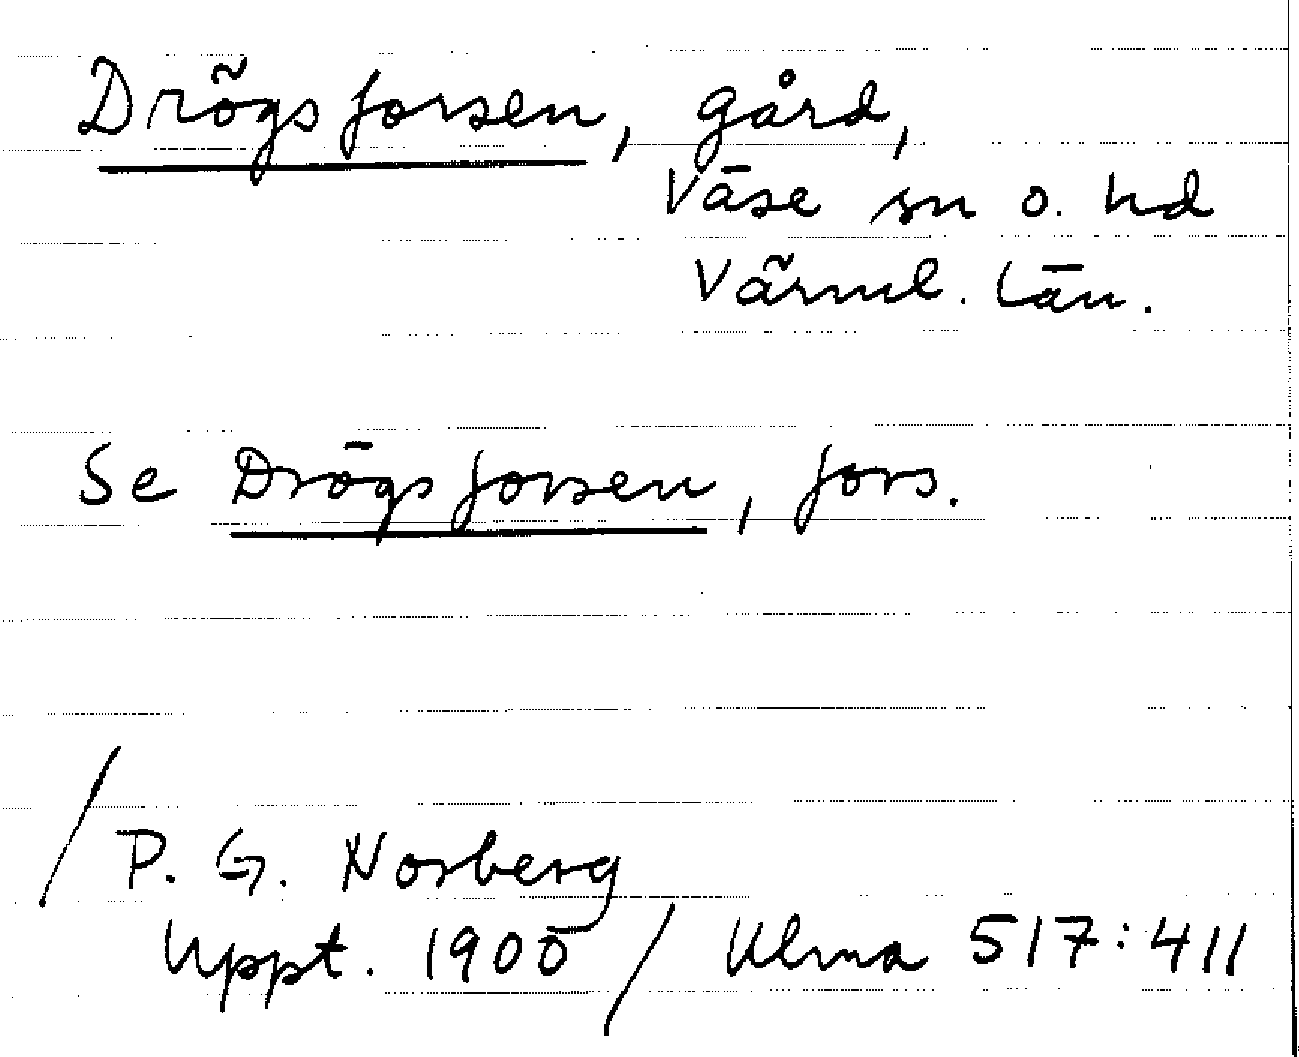 Drögsforsen, gård,
Väse sn o. hd
Värml. län.
Se Drögsforsen, fors.
/P. G. Norberg
Uppt. 1900 / Ulma 517:411